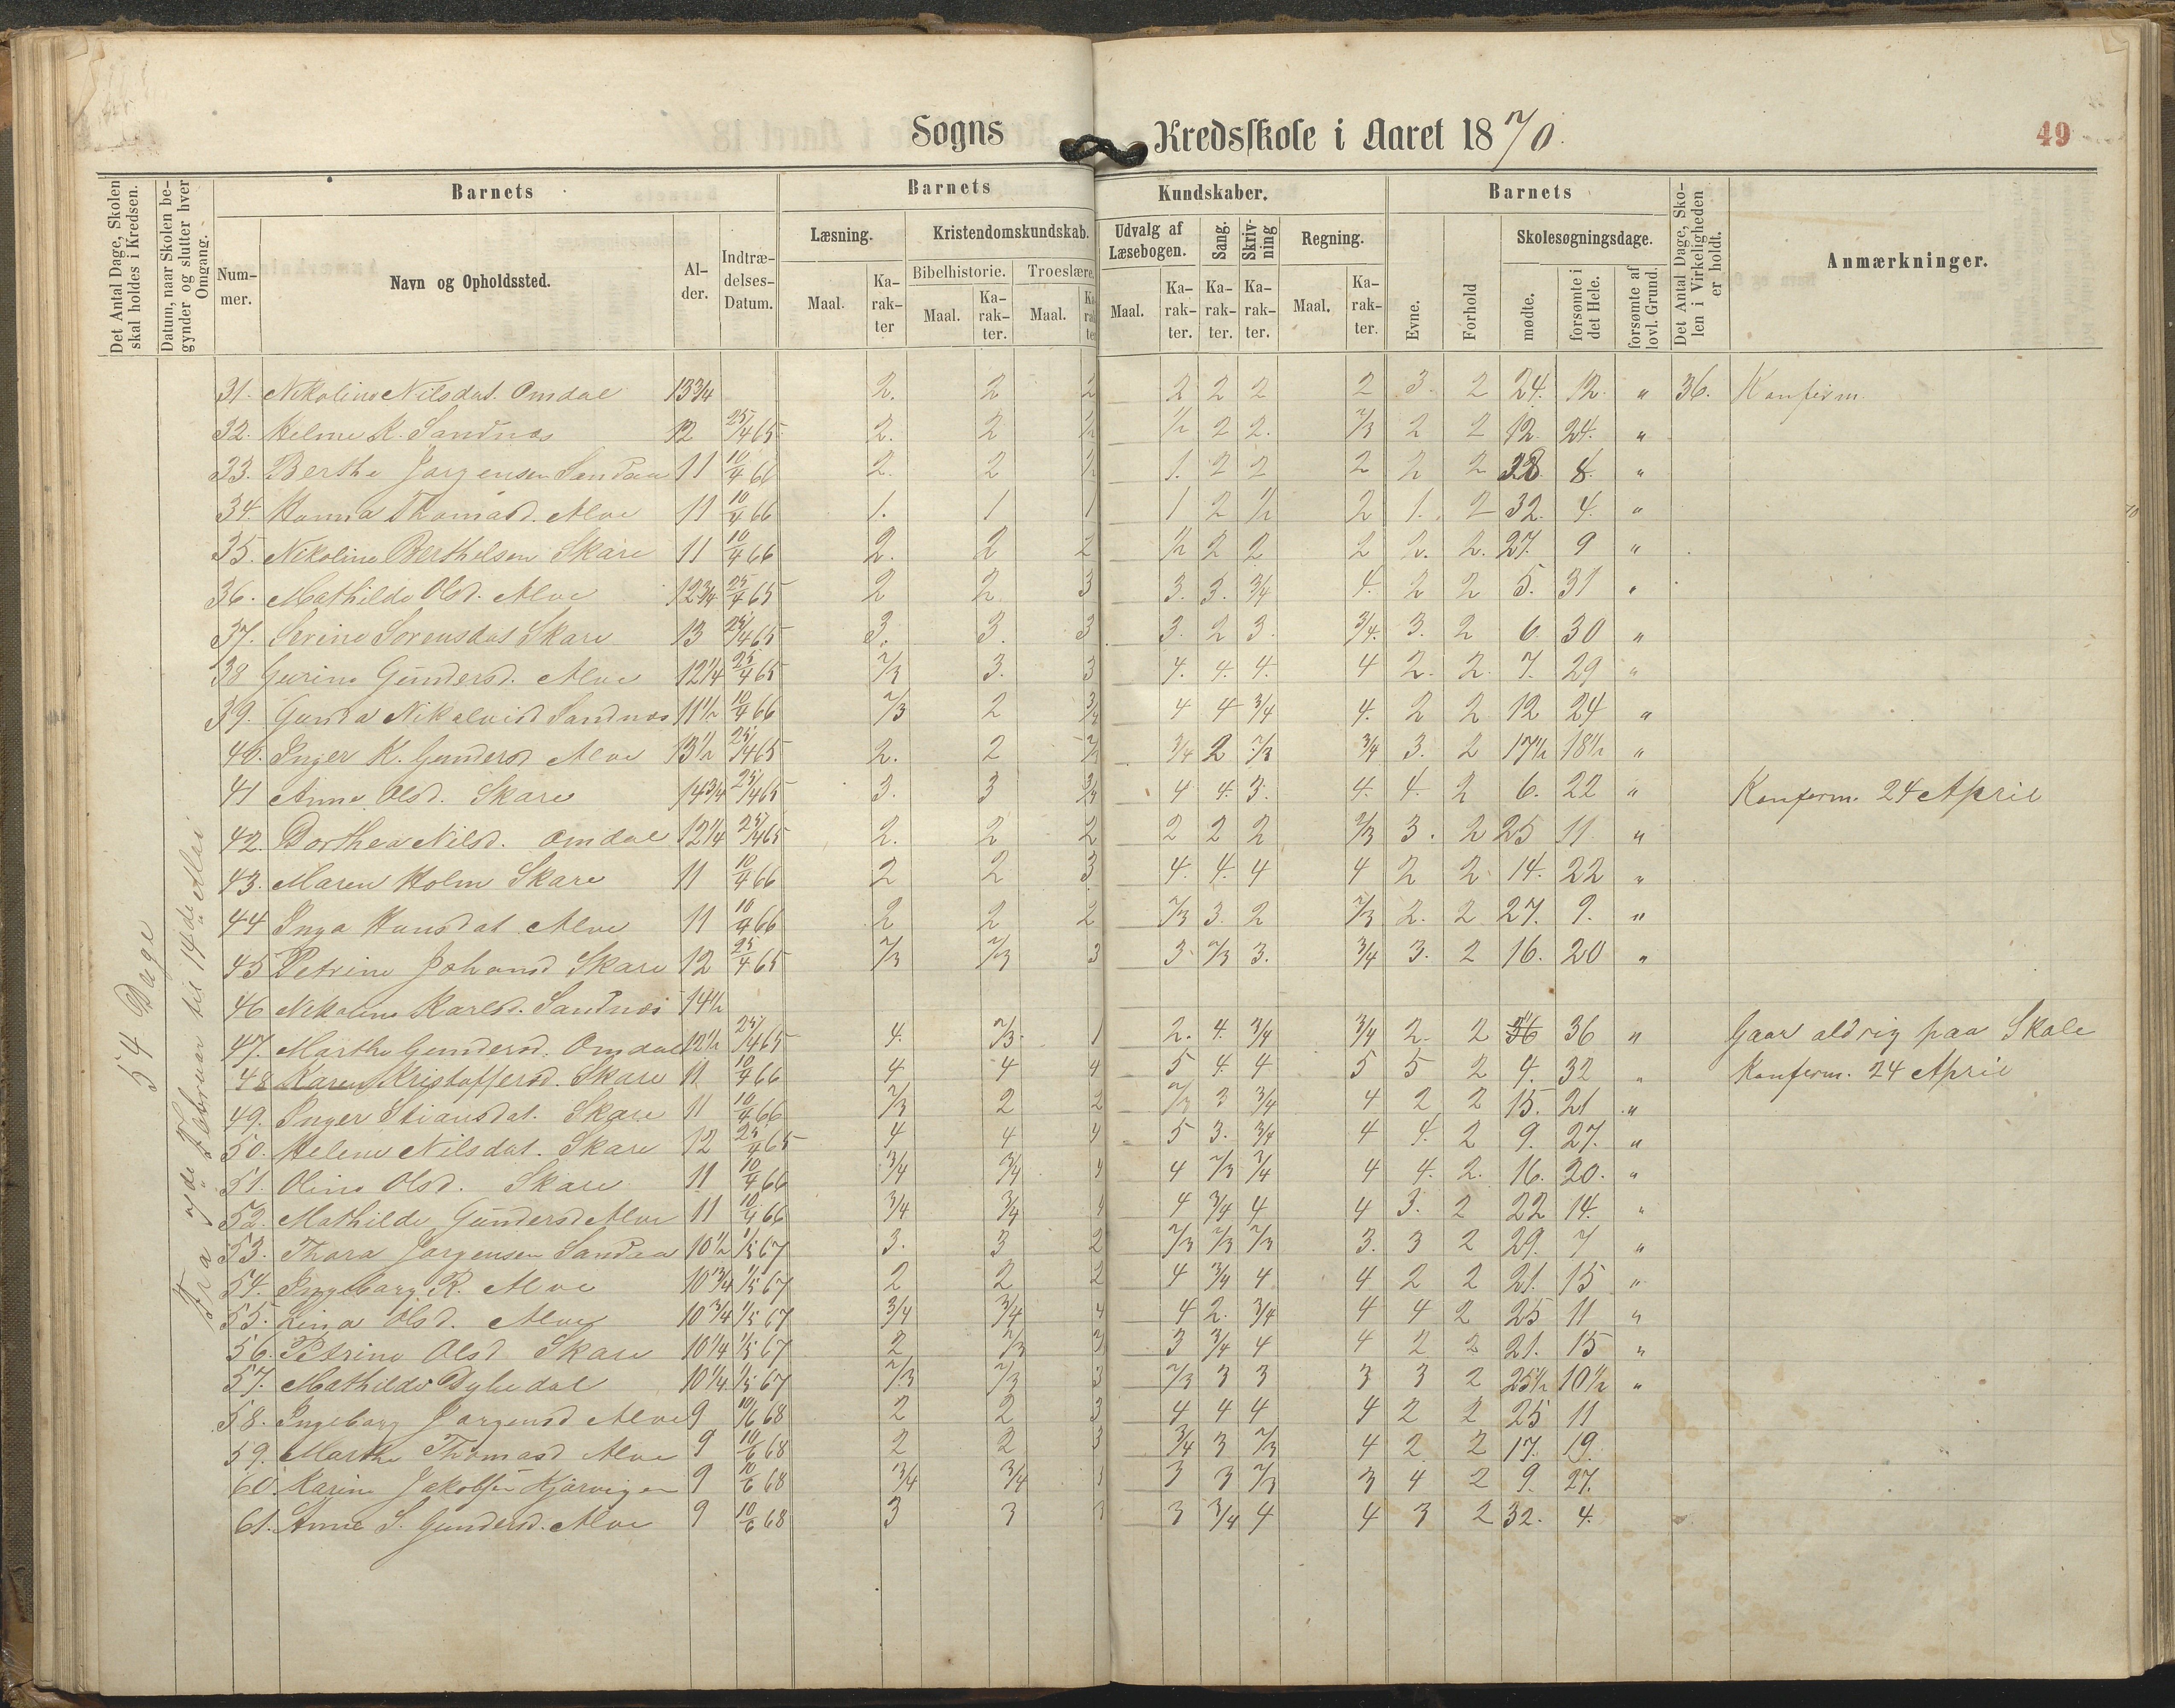 Sogns Kredsskole i Aaret 1870.
49
Det Antal Dage, Skolen skal holdes i Kredsen.
Datum, naar Skolen begynder og slutter hver Omgang.
Barnets
Barnets
Kundskaber.
Barnets
Det Antal Dage, Skolen i Virkeligheden er holdt.
Anmærkninger.
Nummer.
Navn og Opholdssted.
Alder.
Indtrædelses-Datum.
Læsning.
Kristendomskundskab.
Udvalg af Læsebogen.
Sang.
Skrivning
Regning.
Evne.
Forhold
Skolesøgningsdage.
Bibelhistorie.
Troeslære.
Maal.
Karakter
Maal.
Karakter.
Maal.
Karakter
Maal.
Karakter.
Karakter.
Karakter.
Maal.
Karakter.
mødte.
forsømte i det Hele.
forsømte af lovl. Grund.
54 Dage
Fra 7de Februar til 14de Mai
31. Nikoline Nilsdat. Omdal 13 3/4 2. 2 2 2 2 2 2 3. 2 24. 12. " 36. Konfirm.
32. Helene K. Sandnæs 12 25/4 65 2. 2 1/2 1/2 2 2. 2/3 2 2 12. 24. "
33. Berthe Jørgensen Sandaa 11 10/4 66 2. 2 1/2 1. 2 2 2 2 2 28 8. "
34. Hanna Thomasd. Alve 11 10/4 66 1. 1 1 1 2 1/2 2 1. 2 32. 4. "
35. Nikoline Berthelsen Skare 11 10/4 66 2. 2 2 1/2 2 2 2 2. 2. 27. 9 "
36. Mathilde Olsd. Alve 12 3/4 25/4 65 2 2 3 3. 3. 3/4 4. 2 2 5. 31 "
37. Serine Sorensdat Skare 13 25/4 65 3. 3. 3 3. 2 3. 3/4. 3. 2 6 30 "
38 Gurine Gundersd. Alve 12 1/4 25/4 65 2/3 3. 3 4. 4. 4. 4 2. 2. 7. 29 "
39. Gunda Nikolaisd Sandnæs 11 1/2 10/4 66 2/3 2 3/4 4 4 3/4 4. 2 2 12 24 "
40. Inger K. Gundersd Alve 13 1/2 25/4 65 2. 2 2/3 3/4 2 2/3 3/4 3. 2 17 1/2 18 1/2 "
41 Anne Olsd. Skare 14 3/4 25/4 65 3. 3 3/4 4 4. 3. 4. 4. 2 6. 22 " Konferm. 24 April
42. Dorthea Nilsd. Omdal 12 1/4 25/4 65 2. 2 2 2 2 2 2/3 3. 2 25 11 "
43. Maren Holm Skare 11 10/4 66 2 2 3 4. 4. 4 4 2 2 14. 22 "
44 Inga Hansdat Alve 11 10/4 66 2 2 2 2/3 3. 2 2/3 2. 2 27. 9. "
45 Petrine Johansd Skare 12 25/4 65 2/3 2/3 3 3 2/3 3. 3/4 3. 2 16. 20 "
46 Nikoline Karlsd. Sandnæs 14 1/2
47. Marthe Gundersd. Omdal 12 1/2 25/4 65 4. 2/3. 1 2. 4. 3/4 3/4 2. 2 36 " Gaar aldrig paa Skole
48 Karen Kristoffersd. Skare 11 10/4 66 4 4 4 5 4 4 5 5 2 4. 32 " Konferm. 24 April
49. Inger Stiansdat. Skare 11 10/4 66 2/3 2 2 2/3 3 3/4 4 2 2 15. 21 "
50. Helene Nilsdat. Skare 12 25/4 65 4 4 4 5 3. 3/4 4 4. 2 9. 27. "
51. Oline Olsd. Skare 11 10/4 66 3/4 3/4 4 4 2/3 3/4 4 4. 2. 16. 20. "
52. Mathilde Gundersd Alve 11 10/4 66 3/4 3/4 4 4 3/4 4 4 3. 2 22 14. "
53. Thora Jørgensen Sandaa 10 1/2 1/5 67 3. 3 2 2/3 2/3 2/3 3. 3 2 29. 7 "
54. Ingeborg R. Alve 10 3/4 1/5 67 2 2 2 4 3/4 4 4 2 2 21. 15 "
55. Lina Olsd. Alve 10 3/4 1/5 67 3/4 3/4 4 4 2. 3/4 4 4 2 25 11 "
56. Petrine Olsd Skare 10 1/4 1/5 67 2 2/3 3 3/4 4 4 2 2 21. 15 "
57. Mathilde Dybedal 10 1/4 1/5 67 2/3 2/3 3 2/3 3 3 3 3 2 25 1/2 10 1/2 "
58. Ingeborg Jørgensd Alve 9 10/6 68 2 2 3 4 4 4 4 2 2 25 11
59. Marthe Thomasd Alve 9 10/6 68 2 2 3 3/4 3 2/3 4 2 2 17. 19.
60. Karine Jakobsen Kjørvigen 9 10/6 68 3/4 3/4 3 3 2/3 3 4 2 9. 27.
61. Anne S. Gundersd. Alve 9 10/6 68 3 3 3 3 3/4 4 4 3 2 32. 4.